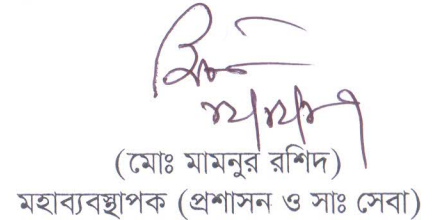 (মোঃ মামনুর রশিদ)
মহাব্যবস্থাপক (প্রশাসন ও সাঃ সেবা)